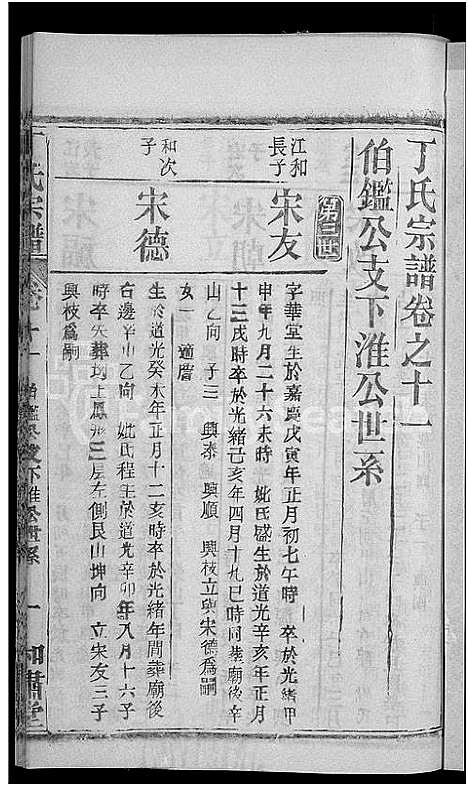 丁氏宗譜卷之十一
伯鑑公支下淮公世系
第三世
江和長子
宋友
字華堂生於嘉慶戊寅年正月初七午時 卒於光緒甲
申年九月二十六未時 妣氏盛生於道光辛亥年正月
十三戌時卒於光緒己亥年四月十九巳時同葬廟後辛
山乙向 子三 興泰 興順 興枝立與宋德為嗣
女一 適詹
和次子
宋德
生於道光癸未年正月十二亥時卒於光緒年間葬廟後
右邊辛山乙向 妣氏程生於道光辛卯年八月十六子
時卒失葬均上鳳形三房左側艮山坤向 立宋友三子
興枝為嗣
丁氏宗譜
卷十一
伯鑑公支下淮公世系
一